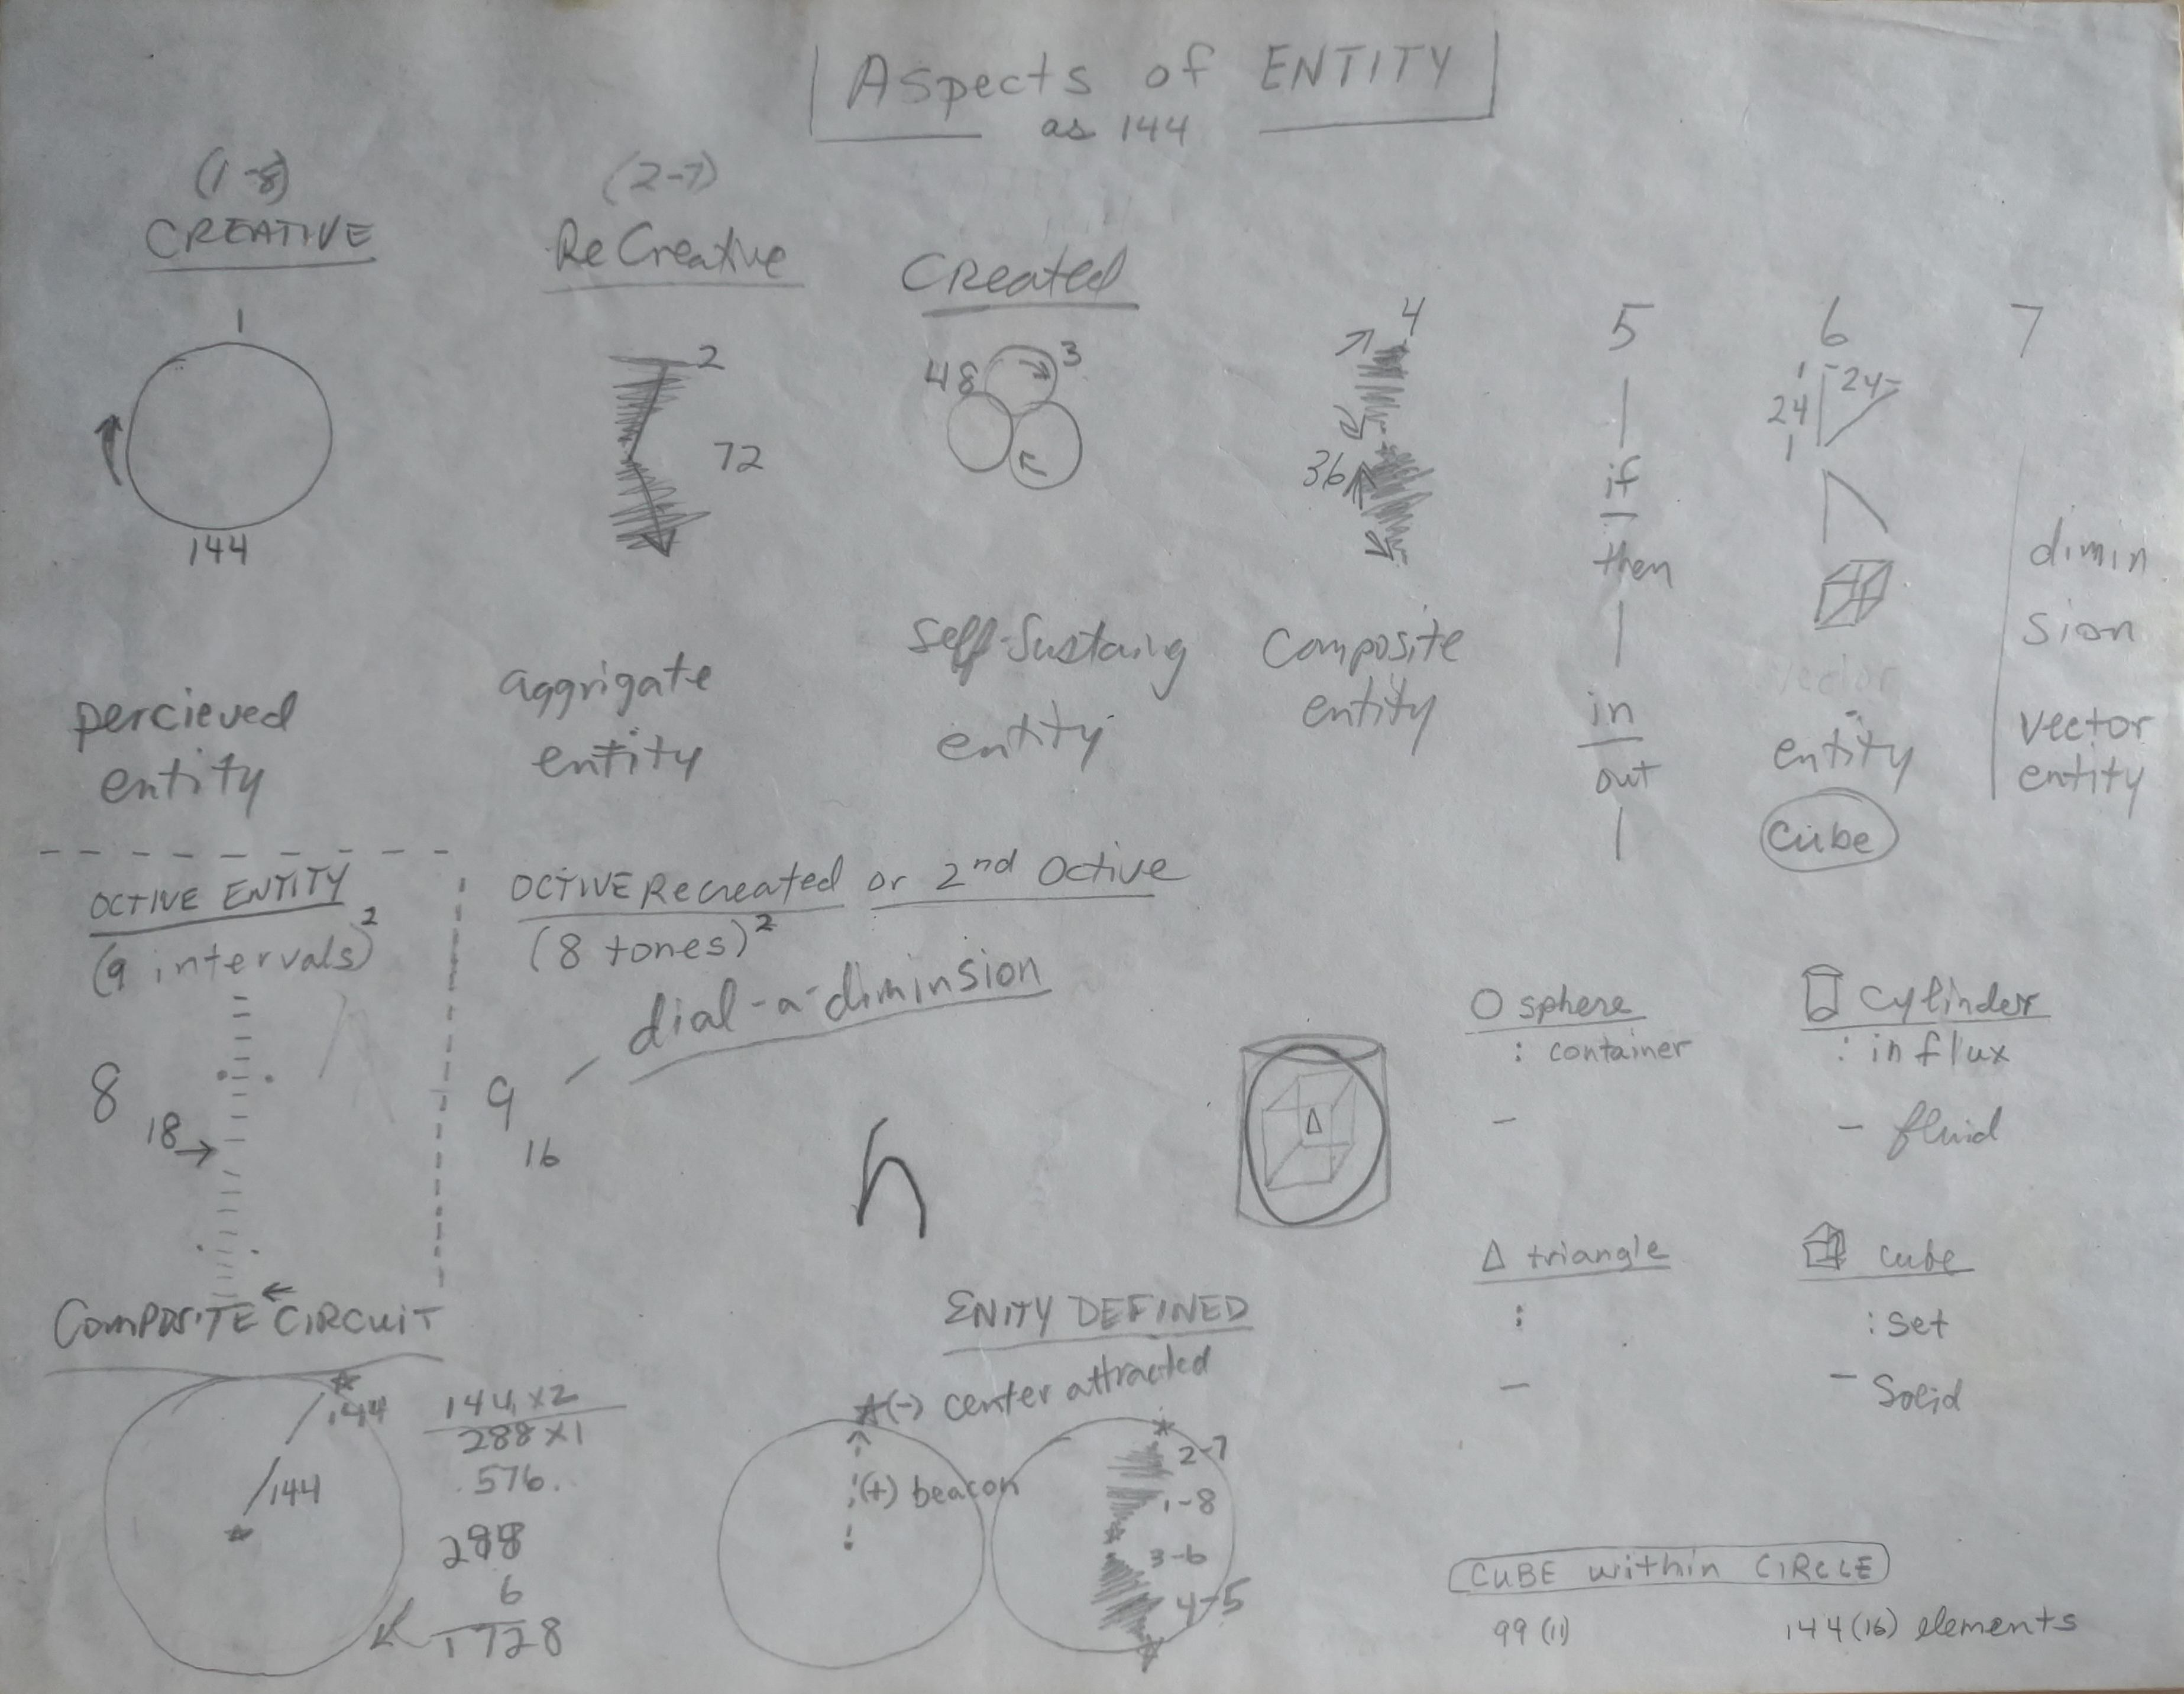 Aspects of ENTITY
as 144
(1-8)
CREATIVE
1
144
percieved
entity
(2-7)
ReCreative
2
72
aggrigate
entity
Created
48
3
Self-Sustaing
entity
4
36
Composite
entity
5
if
then
in
out
6
1
24
24
1
vector
entity
Cube
7
dimin
sion
vector
entity
OCTIVE ENTITY
(9 intervals)²
8
18
OCTIVE Recreated or 2nd Octive
(8 tones)²
dial-a-diminsion
9
16
h
Δ
O sphere
: container
-
cylinder
: influx
- fluid
Δ triangle
:
-
cube
: set
- Solid
COMPOSITE CIRCUIT
144
144
144 x2
288 x1
576
288
6
1728
ENITY DEFINED
(-) center attracted
(+) beacon
2-7
1-8
3-6
4-5
CUBE within CIRCLE
99 (11)
144 (16) elements